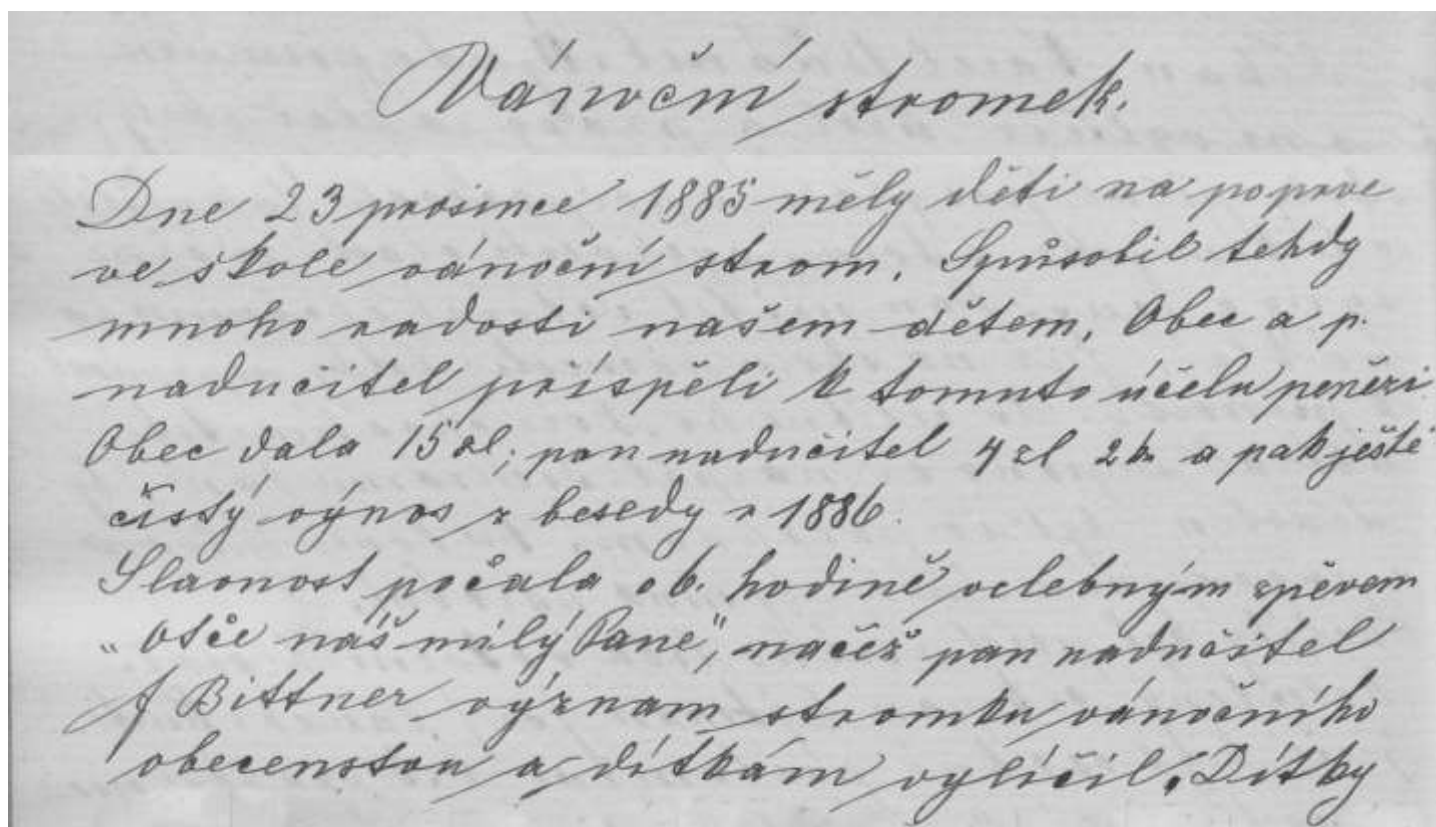 Vánoční stromek.
Dne 23 prosince 1885 měly děti na poprve
ve škole vánoční strom. Spůsobil tehdy
mnoho radosti našem dětem. Obec a p.
nadučitel příspěli k tomuto účelu penězi.
Obec dala 15 zl, pan nadučitel 4 zl 2 kr a pak ještě
čistý výnos z besedy r 1886.
Slavnost počala o 6. hodině velebným zpěvem
„Otče náš milý Pane", načež pan nadučitel
J Bittner význam stromku vánočního
obecenstvu a dítkám vylíčil. Dítky